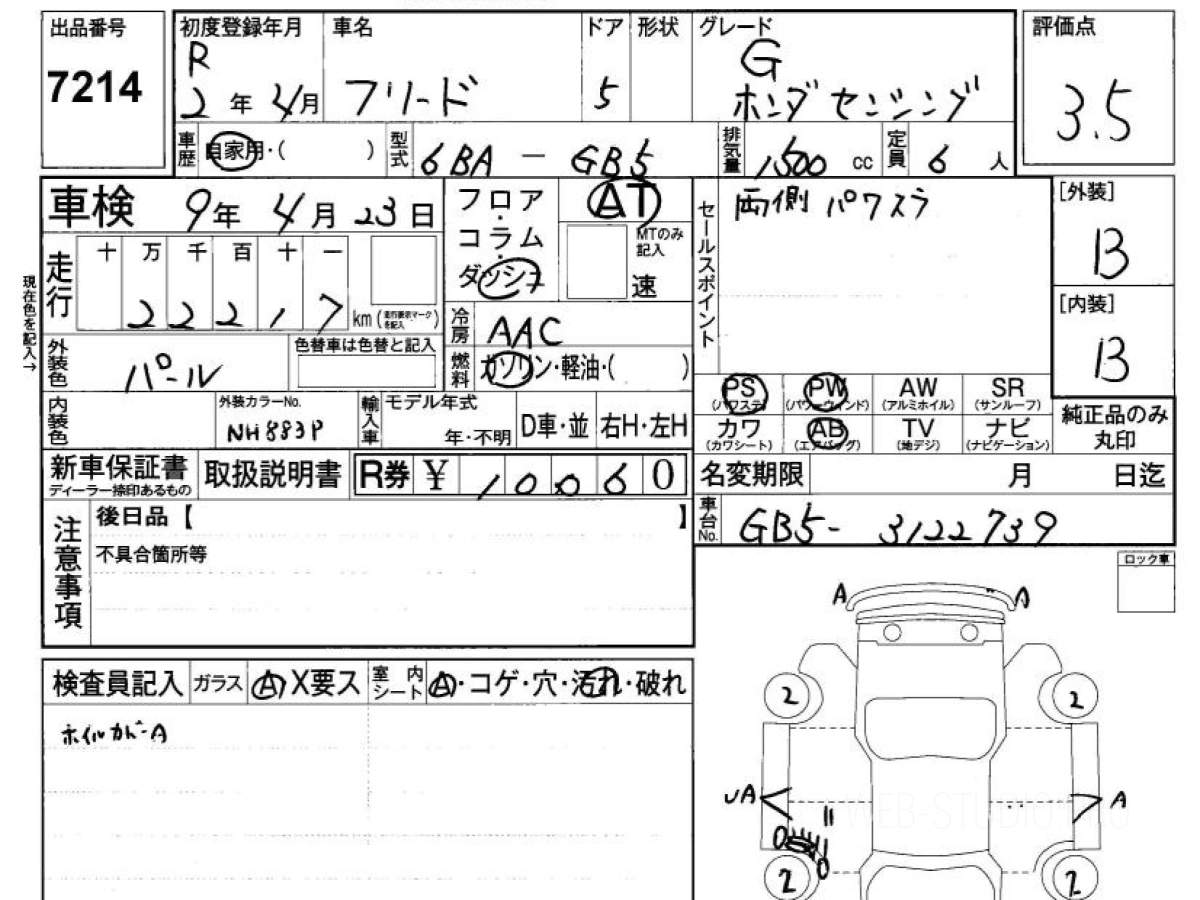 出品番号 初度登録年月 車名 ドア 形状 グレード 評価点
7214 R 2年 4月 フリード 5 G ホンダセンシング 3.5
車歴 自家用・( ) 型式 6BA - GB5 排気量 1500 cc 定員 6 人
車検 9年 4月 23日 フロア・コラム・ダッシュ AT セールスポイント 両側パワスラ [外装]
B
MTのみ記入 速
走行 十 万 千 百 十 一
2 2 2 1 7 km (走行表示マークを記入)
現在色を記入→
冷房 AAC [内装]
B
外装色 パール 色替車は色替と記入 燃料 ガソリン・軽油・( )
PS (パワステ) PW (パワーウィンド) AW (アルミホイル) SR (サンルーフ)
内装色 外装カラーNo. NH883P 輸入車 モデル年式 年・不明 D車・並 右H・左H
カワ (カワシート) AB (エアバッグ) TV (地デジ) ナビ (ナビゲーション) 純正品のみ丸印
新車保証書 ディーラー捺印あるもの 取扱説明書 R券 ¥ 10060 名変期限 月 日迄
注意事項 後日品【 】 車台No. GB5-3122739
不具合箇所等
ロック車
A A
検査員記入 ガラス A X要ス 室内シート A・コゲ・穴・汚れ・破れ
ホイルカバーA
2 2
UA A
WEB-STUDIO
2 2